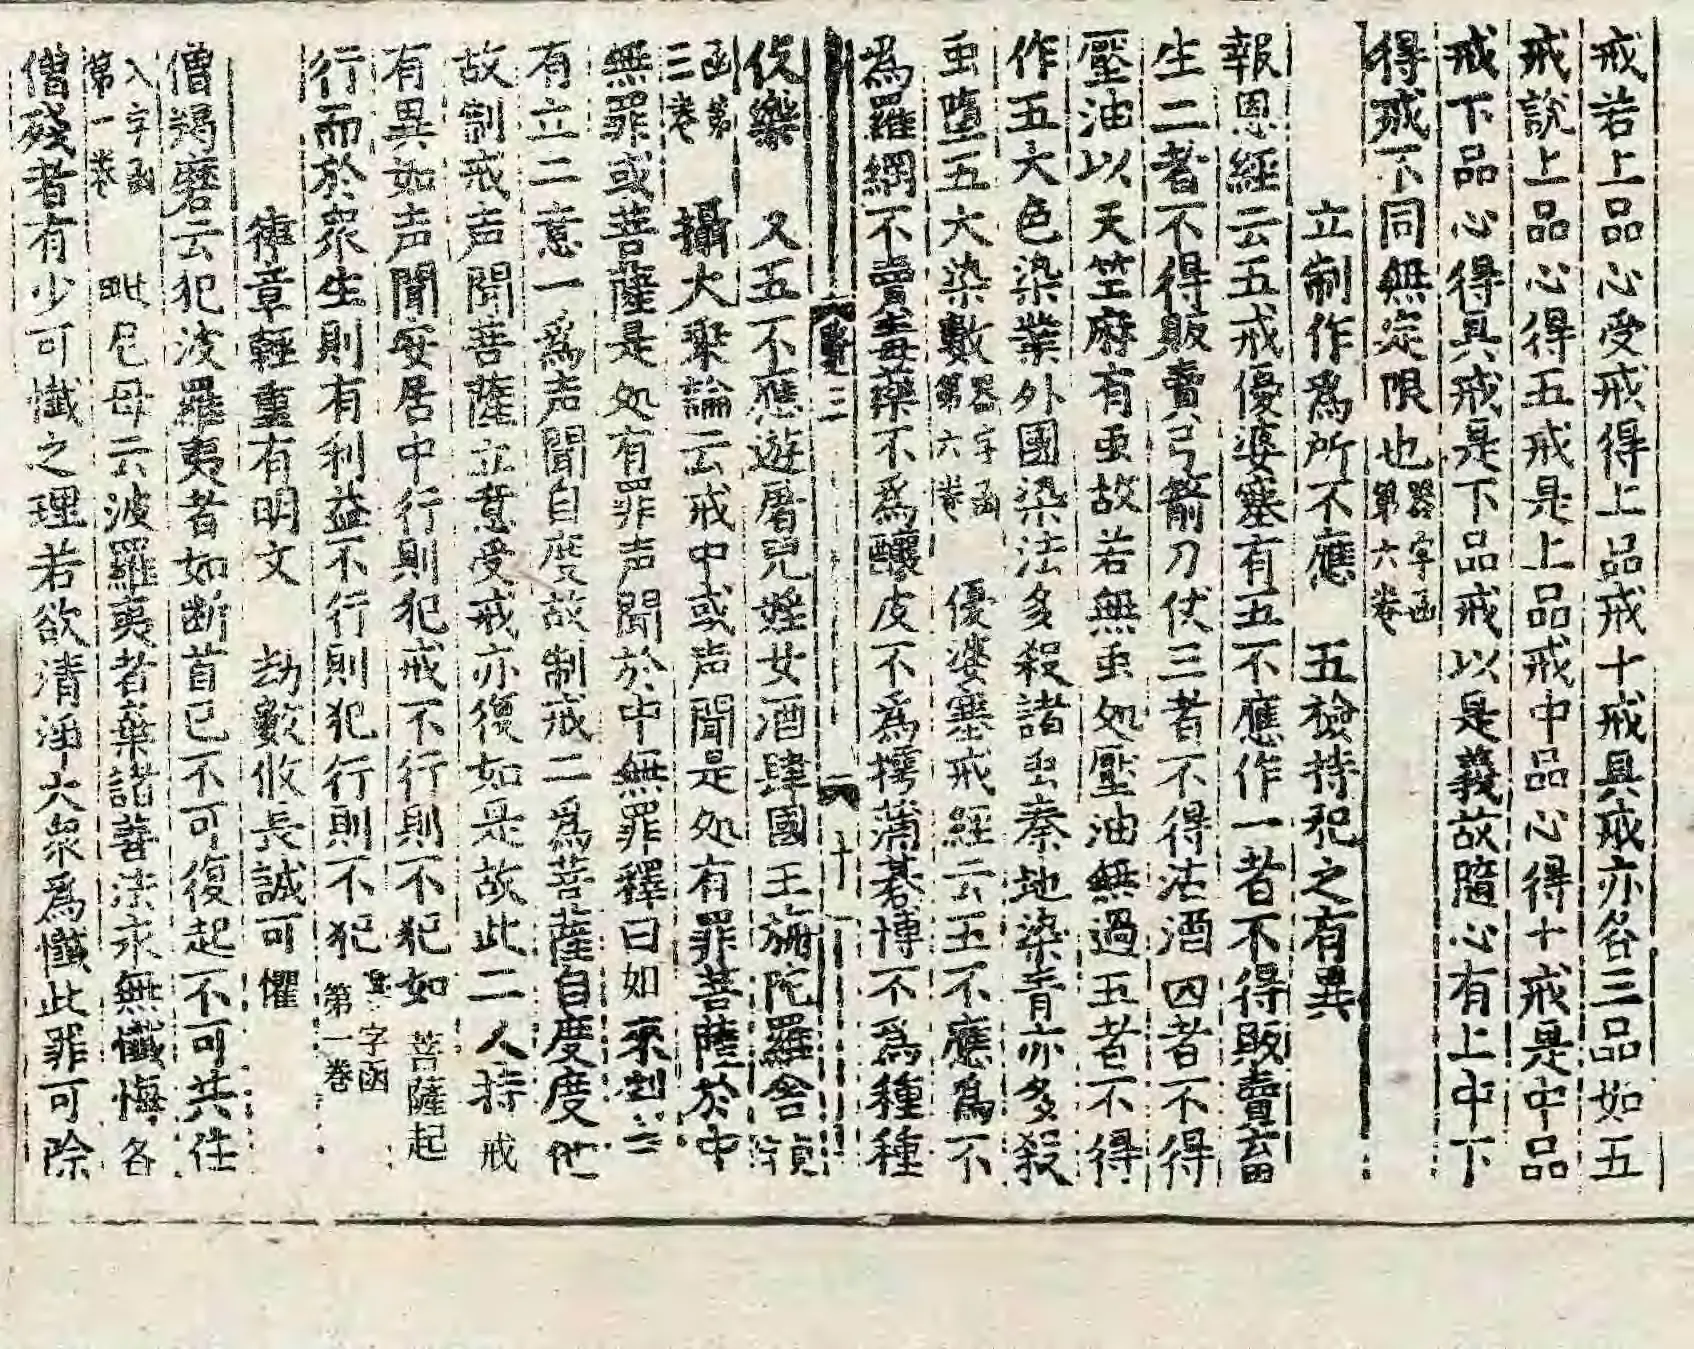 戒若上品心受戒得上品戒十戒具戒亦各三品如五
戒說上品心得五戒是上品戒中品心得十戒是中品
戒下品心得具戒是下品戒以是義故隨心有上中下
得戒不同無定限也器字函第六卷
立制作爲所不應 五撿持犯之有異
報恩經云五戒優婆塞有五不應作一者不得販賣畜
生二者不得販賣弓箭刀仗三者不得沽酒四者不得
壓油以天竺麻有虫故若無虫処壓油無過五者不得
作五大色染業外國染法多殺諸虫秦地染青亦多殺
虫墮五大染數器字函第六卷 優婆塞戒經云五不應爲不
為羅網不賣毒藥不爲釀皮不爲摴蒲碁博不爲種種
三 六 十
伎樂 又五不應遊屠兒婬女酒肆國王旃陀羅舍
函第三卷 攝大乘論云戒中或声聞是処有罪菩薩於中
無罪或菩薩是処有罪声聞於中無罪釋曰如來制二
有立二意一爲声聞自度故制戒二爲菩薩自度度他
故制戒声聞菩薩立意受戒亦復如是故此二人持戒
有異如声聞安居中行則犯戒不行則不犯如菩薩起
行而於眾生則有利益不行則犯行則不犯 字函第一卷
章輕重有明文 劫數攸長誠可懼
僧羯磨云犯波羅夷者如断首已不可復起不可共住
入字函第一卷 毗尼母云波羅夷者藥諸善法永無懺悔各
僧殘者有少可懺之理若欲清淨大眾爲懺此罪可除